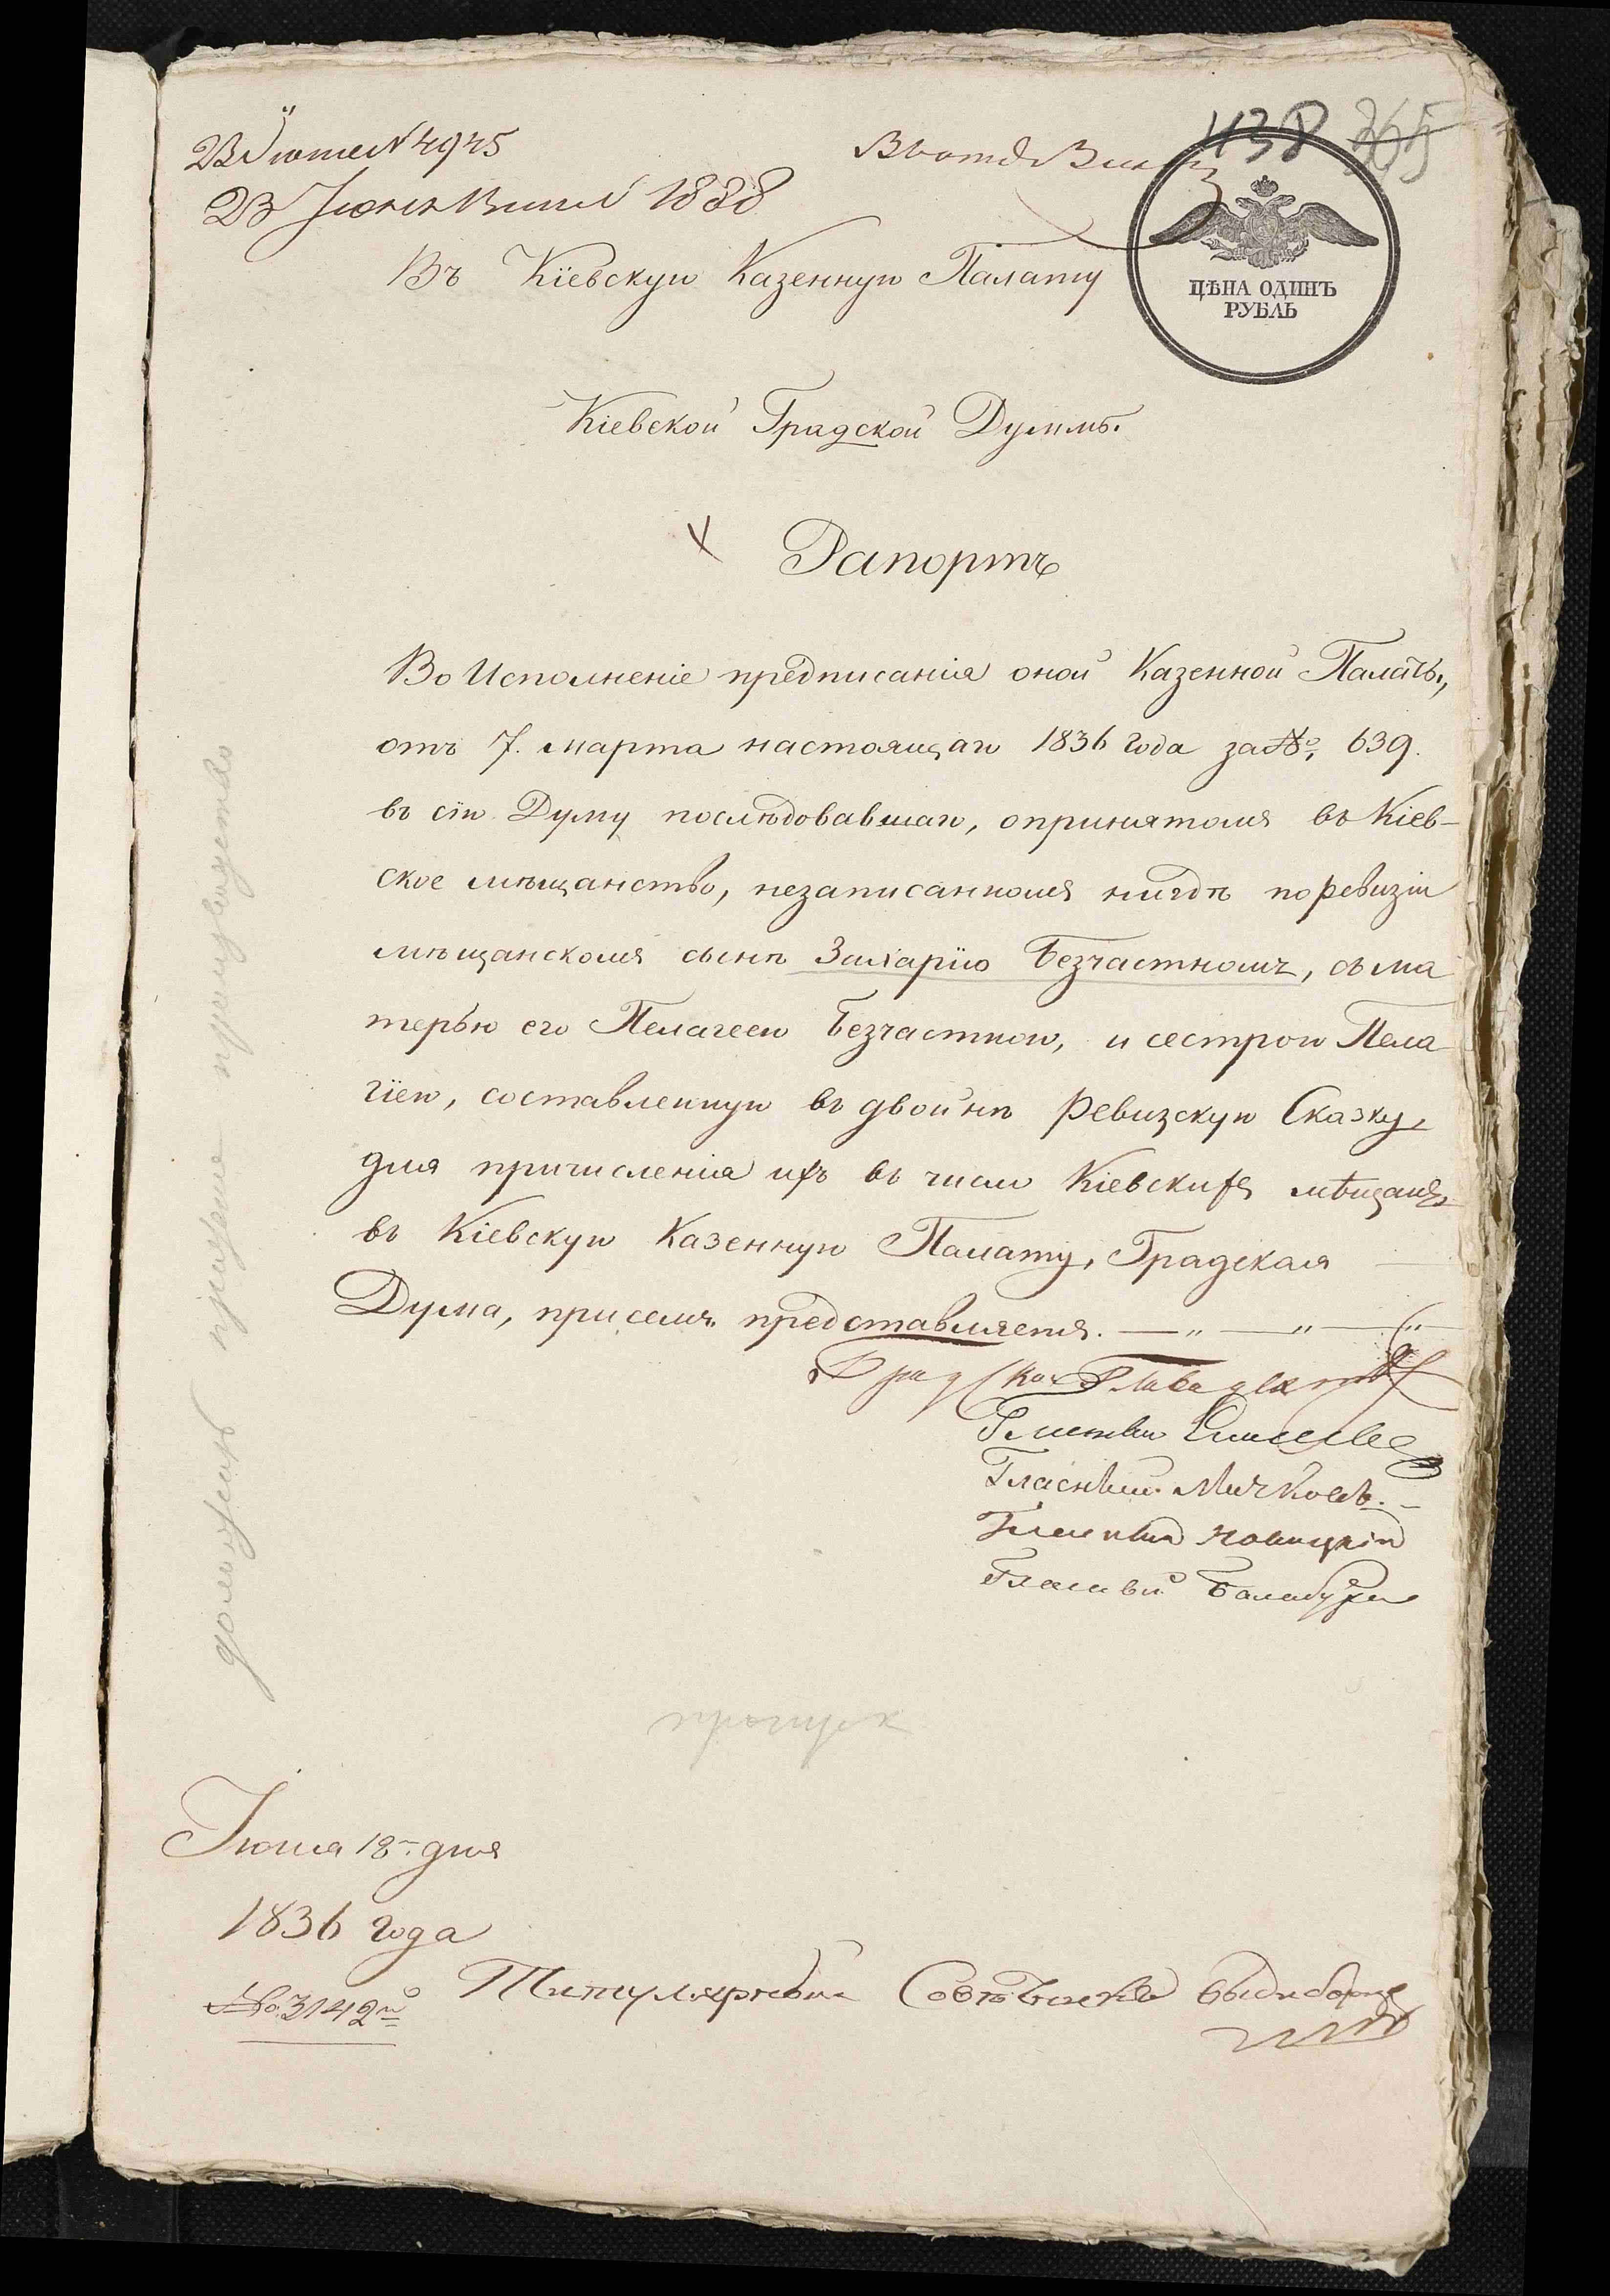 23 Іюня № 4945
438 365
ЦѢНА ОДИНЪ
РУБЛЬ
Въ Кіевскую Казенную Палату
Кіевской Градской Думы.
Рапортъ
Во Исполненіе предписанія оной Казенной Палаты,
отъ 7. марта настоящаго 1836 года за №, 639.
въ сію Думу послѣдовавшаго, опринятомъ въ Кіев-
ское мѣщанство, незаписанномъ нигдѣ поревизіи
мѣщанскомъ сынѣ Захарію Безчастномъ, съ ма
терью его Пелагеею Безчастною, и сестрою Пела
гіею, составленную въ двойнѣ Ревизскую Сказку,
для причисленія ихъ въ число Кіевскихъ мѣщанъ,
въ Кіевскую Казенную Палату, Градская
Дума, присемъ представляетъ.
Градской Глава
Гласный Елисеевъ
Гласный Мичковъ.
Гласный Новицкій
Гласный Балабуха
Іюня 18. дня
1836 года
№ 3142й
Титулярный Совѣтникъ